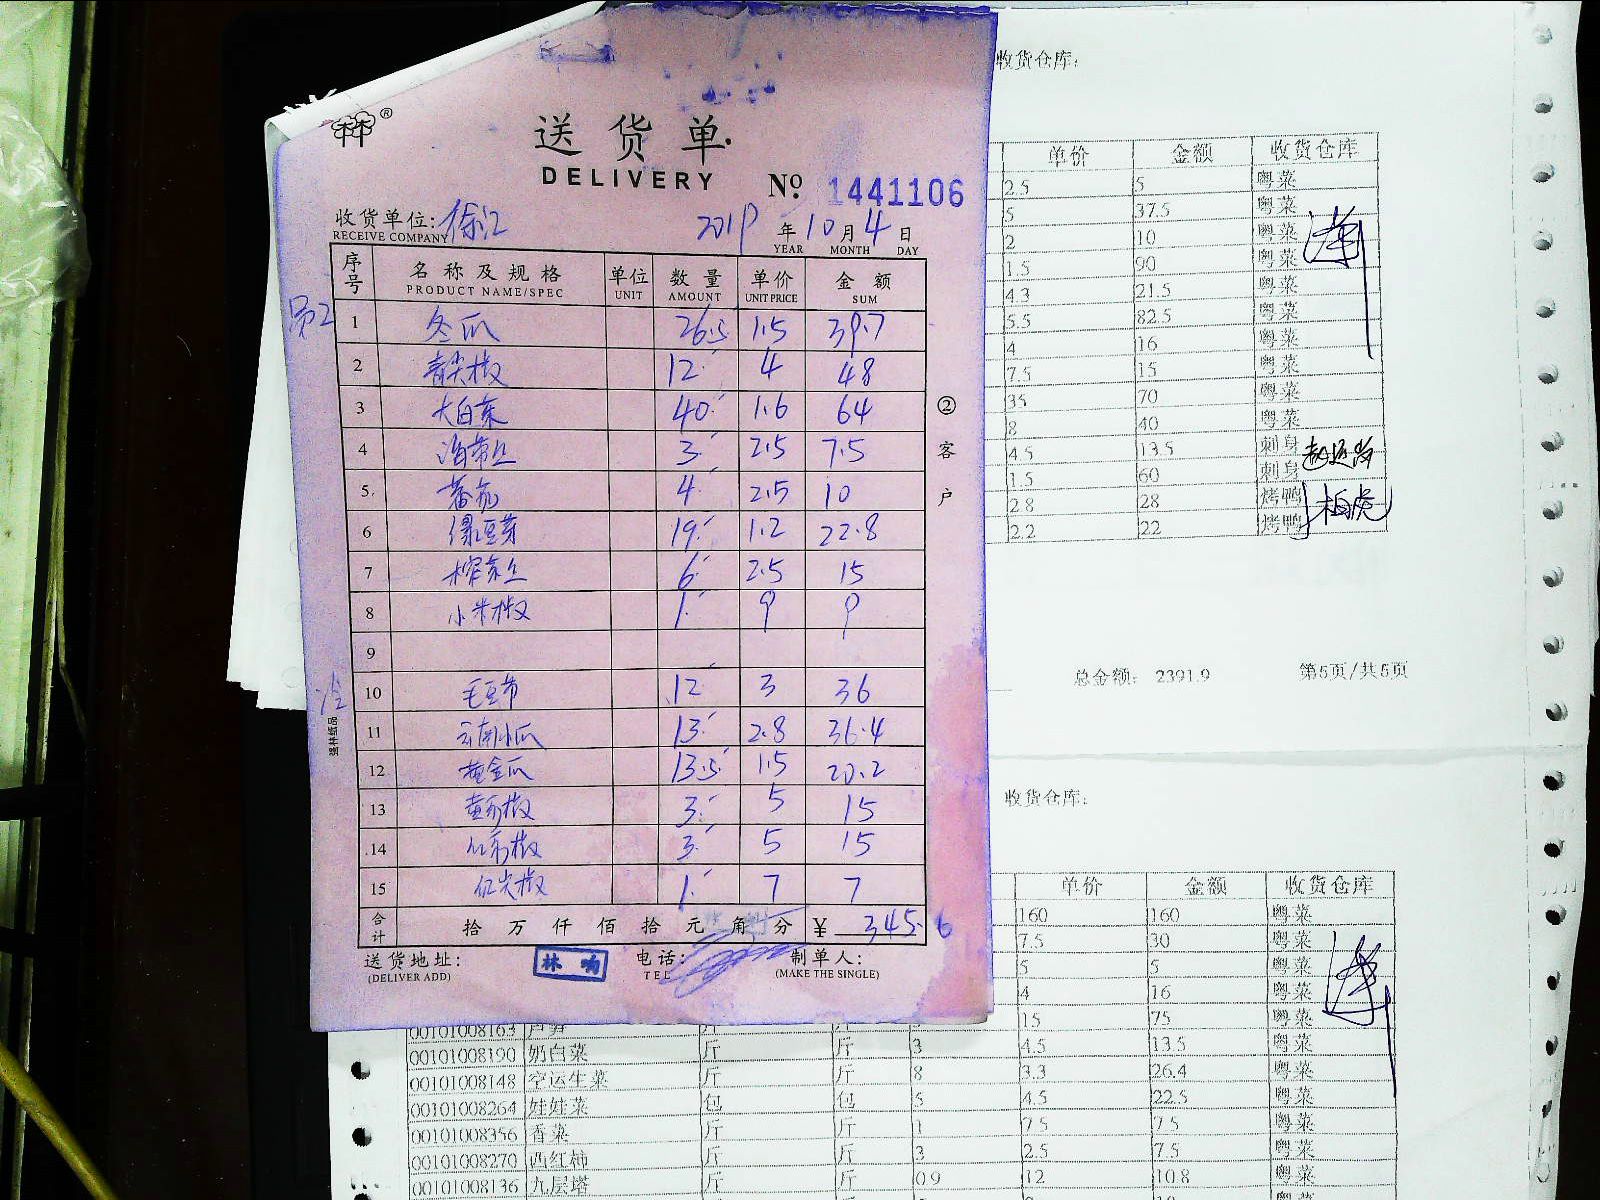 送货单
DELIVERY
№ 1441106
收货单位: 徐汇 2019 年 10 月 4 日
RECEIVE COMPANY YEAR MONTH DAY
序号 名称及规格 单位 数量 单价 金额
PRODUCT NAME/SPEC UNIT AMOUNT UNIT PRICE SUM
1 冬瓜 26.5 1.5 39.7
2 青尖椒 12 4 48
3 大白菜 40 1.6 64
4 海带丝 3 2.5 7.5
5 蕃茄 4 2.5 10
6 绿豆芽 19 1.2 22.8
7 榨菜丝 6 2.5 15
8 小米椒 1 9 9
9
10 毛豆节 12 3 36
11 云南小瓜 13 2.8 36.4
12 黄金瓜 13.5 1.5 20.2
13 黄彩椒 3 5 15
14 红彩椒 3 5 15
15 红尖椒 1 7 7
合计 拾 万 仟 佰 拾 元 角 分 ¥ 345.6
送货地址: 林响 电话: 制单人:
(DELIVER ADD) TEL (MAKE THE SINGLE)
②客户
强林纸品
收货仓库:
单价 金额 收货仓库
2.5 5 粤菜
5 37.5 粤菜
2 10 粤菜
1.5 90 粤菜
4.3 21.5 粤菜
5.5 82.5 粤菜
4 16 粤菜
7.5 15 粤菜
35 70 粤菜
8 40 粤菜
4.5 13.5 刺身
1.5 60 刺身
2.8 28 烤鸭
2.2 22 烤鸭
总金额: 2391.9 第5页/共5页
收货仓库:
单价 金额 收货仓库
160 160 粤菜
7.5 30 粤菜
5 5 粤菜
4 16 粤菜
00101008163 芦笋 斤 斤 5 15 75 粤菜
00101008190 奶白菜 斤 斤 3 4.5 13.5 粤菜
00101008148 空运生菜 斤 斤 8 3.3 26.4 粤菜
00101008264 娃娃菜 包 包 5 4.5 22.5 粤菜
00101008356 香菜 斤 斤 1 7.5 7.5 粤菜
00101008270 西红柿 斤 斤 3 2.5 7.5 粤菜
00101008136 九层塔 斤 斤 0.9 12 10.8 粤菜